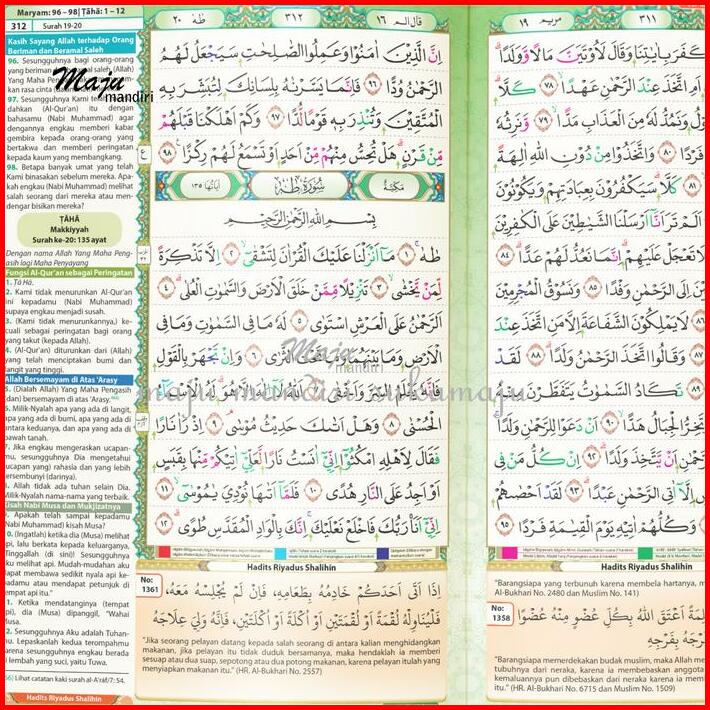 Maryam: 96 – 98 | Ṭāhā: 1 – 12
312 Surah 19-20
Kasih Sayang Allah terhadap Orang
Beriman dan Beramal Saleh
96. Sesungguhnya bagi orang-orang
yang beriman dan beramal saleh, (Allah)
Yang Maha
kan rasa cinta
97. Sesungguhnya Kami
dahkan (Al-Qur'an) itu dengan
bahasamu (Nabi Muhammad) agar
dengannya engkau memberi kabar
gembira kepada orang-orang yang
bertakwa dan memberi peringatan
kepada kaum yang membangkang.
98. Betapa banyak umat yang telah
Kami binasakan sebelum mereka. Apa-
kah engkau (Nabi Muhammad) melihat
salah seorang dari mereka atau men-
dengar bisikan mereka?
ṬĀHĀ
Makkiyyah
Surah ke-20: 135 ayat
Dengan nama Allah Yang Maha Peng-
asih lagi Maha Penyayang
Fungsi Al-Qur'an sebagai Peringatan
1. Ṭā Hā.
2. Kami tidak menurunkan Al-Qur'an
ini kepadamu (Nabi Muhammad)
supaya engkau menjadi susah.
3. (Kami tidak menurunkannya,) ke-
cuali sebagai peringatan bagi orang
yang takut (kepada Allah).
4. (Al-Qur'an) diturunkan dari (Allah)
yang telah menciptakan bumi dan
langit yang tinggi.
Allah Bersemayam di Atas 'Arasy
5. (Dialah Allah) Yang Maha Pengasih
(dan) bersemayam di atas 'Arasy.
6. Milik-Nyalah apa yang ada di langit,
apa yang ada di bumi, apa yang ada di
antara keduanya, dan apa yang ada di
bawah tanah.
7. Jika engkau mengeraskan ucapan-
mu, sesungguhnya Dia mengetahui
(ucapan yang) rahasia dan yang lebih
tersembunyi (darinya).
8. Allah tidak ada tuhan selain Dia.
Milik-Nyalah nama-nama yang terbaik.
Kisah Nabi Musa dan Mukjizatnya
9. Apakah telah sampai kepadamu
(Nabi Muhammad) kisah Musa?
10. (Ingatlah) ketika dia (Musa) melihat
api, lalu berkata kepada keluarganya,
"Tinggallah (di sini)! Sesungguhnya
aku melihat api. Mudah-mudahan aku
dapat membawa sedikit nyala api ke-
padamu atau mendapat petunjuk di
tempat api itu."
11. Ketika mendatanginya (tempat
api), dia (Musa) dipanggil, "Wahai
Musa.
12. Sesungguhnya Aku adalah Tuhan-
mu. Lepaskanlah kedua terompahmu
karena sesungguhnya engkau berada
di lembah yang suci, yaitu Tuwa.
Lihat catatan kaki surah al-A'rāf/7: 54.
Hadits Riyadus Shalihin
Maju
mandiri
طه ٢٠ ٣١٢ قال الم ١٦
اِنَّ الَّذِيْنَ اٰمَنُوْا وَعَمِلُوا الصّٰلِحٰتِ سَيَجْعَلُ لَهُمُ
الرَّحْمٰنُ وُدًّا ٩٦ فَاِنَّمَا يَسَّرْنٰهُ بِلِسَانِكَ لِتُبَشِّرَ بِهِ
الْمُتَّقِيْنَ وَتُنْذِرَ بِهٖ قَوْمًا لُّدًّا ٩٧ وَكَمْ اَهْلَكْنَا قَبْلَهُمْ
مِّنْ قَرْنٍۗ هَلْ تُحِسُّ مِنْهُمْ مِّنْ اَحَدٍ اَوْ تَسْمَعُ لَهُمْ رِكْزًا ٩٨
مَكِّيَّة سُوْرَةُ طٰهٰ اٰيَاتُهَا ١٣٥
بِسْمِ اللّٰهِ الرَّحْمٰنِ الرَّحِيْمِ
طٰهٰ ١ مَآ اَنْزَلْنَا عَلَيْكَ الْقُرْاٰنَ لِتَشْقٰٓى ٢ اِلَّا تَذْكِرَةً
لِّمَنْ يَّخْشٰى ٣ تَنْزِيْلًا مِّمَّنْ خَلَقَ الْاَرْضَ وَالسَّمٰوٰتِ الْعُلٰى ٤
اَلرَّحْمٰنُ عَلَى الْعَرْشِ اسْتَوٰى ٥ لَهٗ مَا فِى السَّمٰوٰتِ وَمَا فِى
الْاَرْضِ وَمَا بَيْنَهُمَا وَمَا تَحْتَ الثَّرٰى ٦ وَاِنْ تَجْهَرْ بِالْقَوْلِ
فَاِنَّهٗ يَعْلَمُ السِّرَّ وَاَخْفٰى ٧ اَللّٰهُ لَآ اِلٰهَ اِلَّا هُوَۗ لَهُ الْاَسْمَاۤءُ
الْحُسْنٰى ٨ وَهَلْ اَتٰىكَ حَدِيْثُ مُوْسٰى ٩ اِذْ رَاٰ نَارًا
فَقَالَ لِاَهْلِهِ امْكُثُوْٓا اِنِّيْٓ اٰنَسْتُ نَارًا لَّعَلِّيْٓ اٰتِيْكُمْ مِّنْهَا بِقَبَسٍ
اَوْ اَجِدُ عَلَى النَّارِ هُدًى ١٠ فَلَمَّآ اَتٰىهَا نُوْدِيَ يٰمُوْسٰٓى ١١
اِنِّيْٓ اَنَا۠ رَبُّكَ فَاخْلَعْ نَعْلَيْكَۚ اِنَّكَ بِالْوَادِ الْمُقَدَّسِ طُوًى ١٢
Maju
mandiri
maju mandiri sukumaju
Hadits Riyadus Shalihin
No:
1361
إِذَا أَتَى أَحَدَكُمْ خَادِمُهُ بِطَعَامِهِ، فَإِنْ لَمْ يُجْلِسْهُ مَعَهُ،
فَلْيُنَاوِلْهُ لُقْمَةً أَوْ لُقْمَتَيْنِ أَوْ أُكْلَةً أَوْ أُكْلَتَيْنِ، فَإِنَّهُ وَلِيَ عِلَاجَهُ
"Jika seorang pelayan datang kepada salah seorang di antara kalian menghidangkan
makanan, jika pelayan itu tidak duduk bersamanya, maka hendaklah ia memberi
sesuap atau dua suap, sepotong atau dua potong makanan, karena pelayan itulah yang
menyiapkan makanan itu." (HR. Al-Bukhari No. 2557)
مريم ١٩ ٣١١
كَفَرَ بِاٰيٰتِنَا وَقَالَ لَاُوْتَيَنَّ مَالًا وَّوَلَدًا
اَمِ اتَّخَذَ عِنْدَ الرَّحْمٰنِ عَهْدًا ٧٨ كَلَّا
وَنَمُدُّ لَهٗ مِنَ الْعَذَابِ مَدًّا ٧٩ وَنَرِثُهٗ
فَرْدًا ٨٠ وَاتَّخَذُوْا مِنْ دُوْنِ اللّٰهِ اٰلِهَةً
٨١ كَلَّا سَيَكْفُرُوْنَ بِعِبَادَتِهِمْ وَيَكُوْنُوْنَ
اَلَمْ تَرَ اَنَّآ اَرْسَلْنَا الشَّيٰطِيْنَ عَلَى الْكٰفِرِيْنَ
لَا تَعْجَلْ عَلَيْهِمْۗ اِنَّمَا نَعُدُّ لَهُمْ عَدًّا ٨٤
اِلَى الرَّحْمٰنِ وَفْدًا ٨٥ وَنَسُوْقُ الْمُجْرِمِيْنَ
لَا يَمْلِكُوْنَ الشَّفَاعَةَ اِلَّا مَنِ اتَّخَذَ عِنْدَ
٨٧ وَقَالُوا اتَّخَذَ الرَّحْمٰنُ وَلَدًا ٨٨ لَقَدْ
٨٩ تَكَادُ السَّمٰوٰتُ يَتَفَطَّرْنَ
تَخِرُّ الْجِبَالُ هَدًّا ٩٠ اَنْ دَعَوْا لِلرَّحْمٰنِ وَلَدًا
اَنْ يَّتَّخِذَ وَلَدًا ٩٢ اِنْ كُلُّ مَنْ فِى
اِلَّآ اٰتِى الرَّحْمٰنِ عَبْدًا ٩٣ لَقَدْ اَحْصٰىهُمْ
وَكُلُّهُمْ اٰتِيْهِ يَوْمَ الْقِيٰمَةِ فَرْدًا ٩٥
Hadits Riyadus Shalihin
"Barangsiapa yang terbunuh karena membela hartanya,
Al-Bukhari No. 2480 dan Muslim No. 141)
No:
1358
"Barangsiapa memerdekakan budak muslim, maka Allah
tubuhnya dari neraka, karena ia membebaskan anggota
kemaluannya pun dibebaskan dari neraka karena ia mem-
." (HR. Al-Bukhari No. 6715 dan Muslim No. 1509)